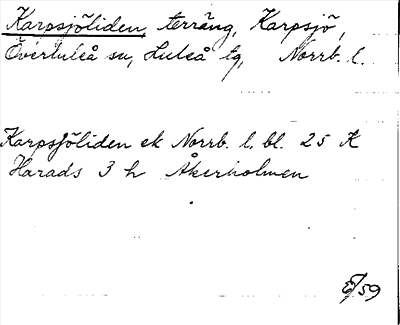 Karpsjöliden, terräng, Karpsjö,
Överluleå sn, Luleå tg, Norrb. l.
Karpsjöliden ek Norrb. l. bl. 25 K
Harads 3 h Åkerholmen
/59